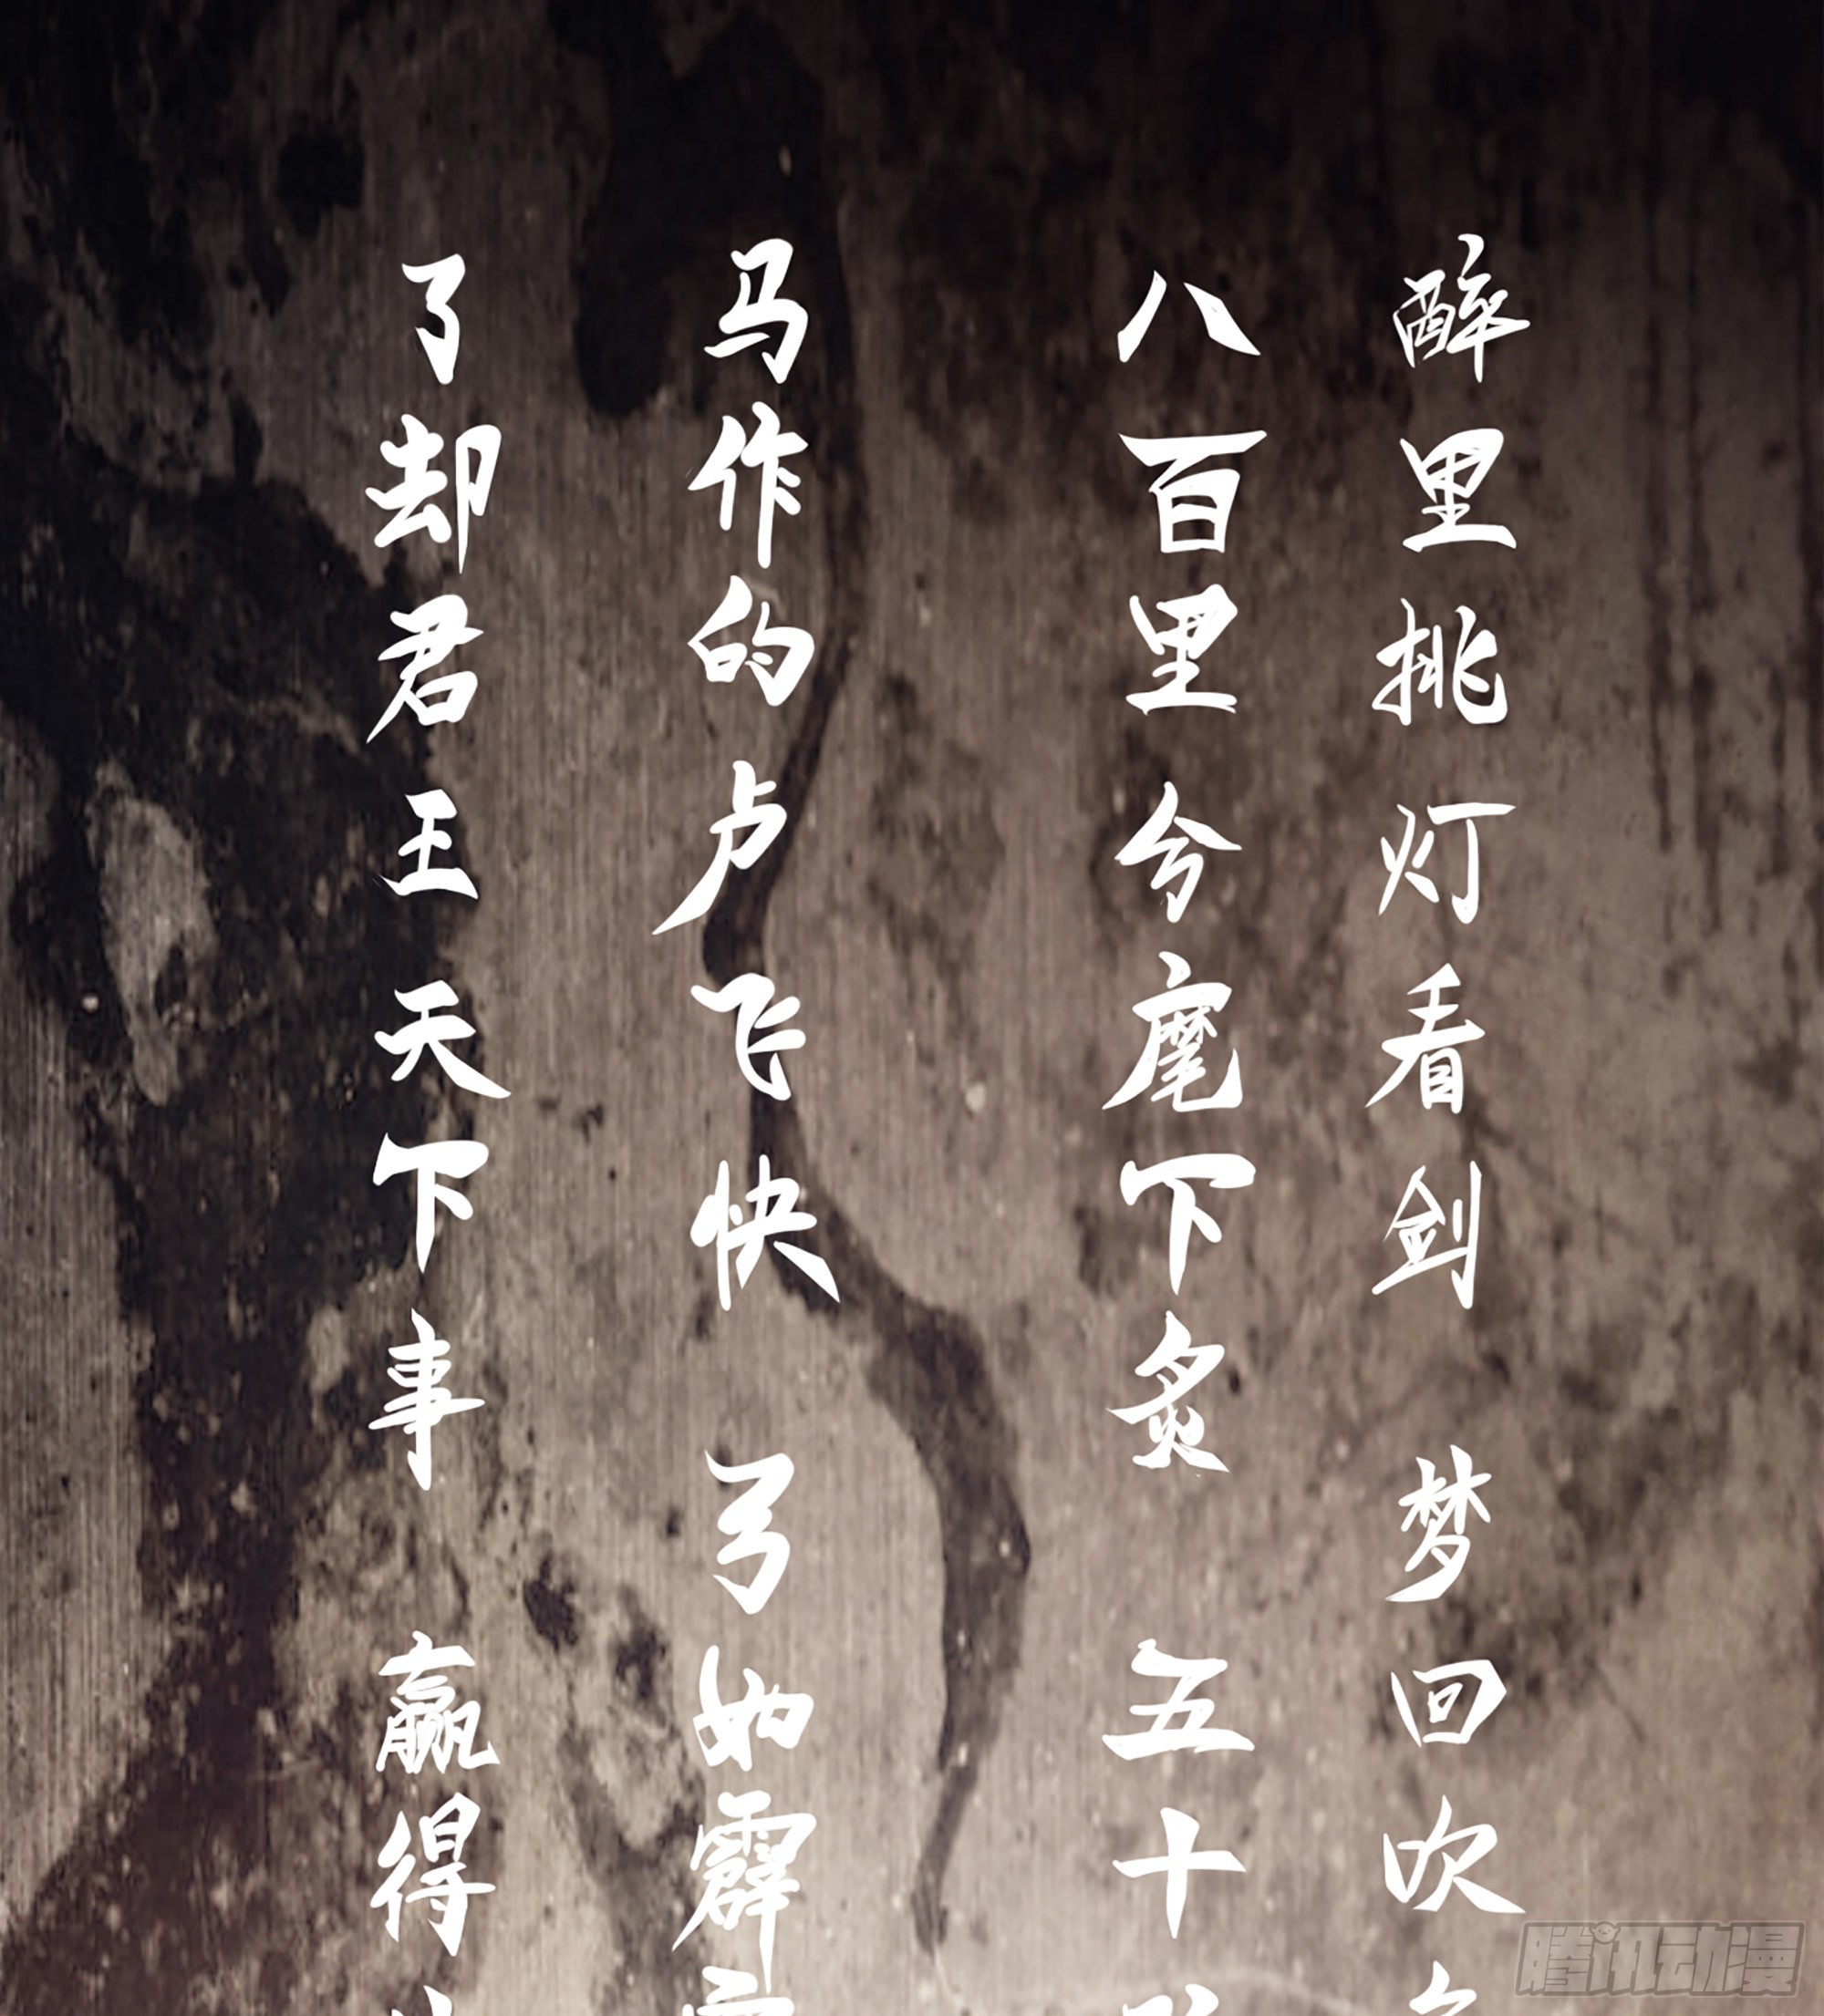 醉里挑灯看剑 梦回吹
八百里兮麾下炙 五十
马作的卢飞快 弓如霹
了却君王天下事 赢得
腾讯动漫